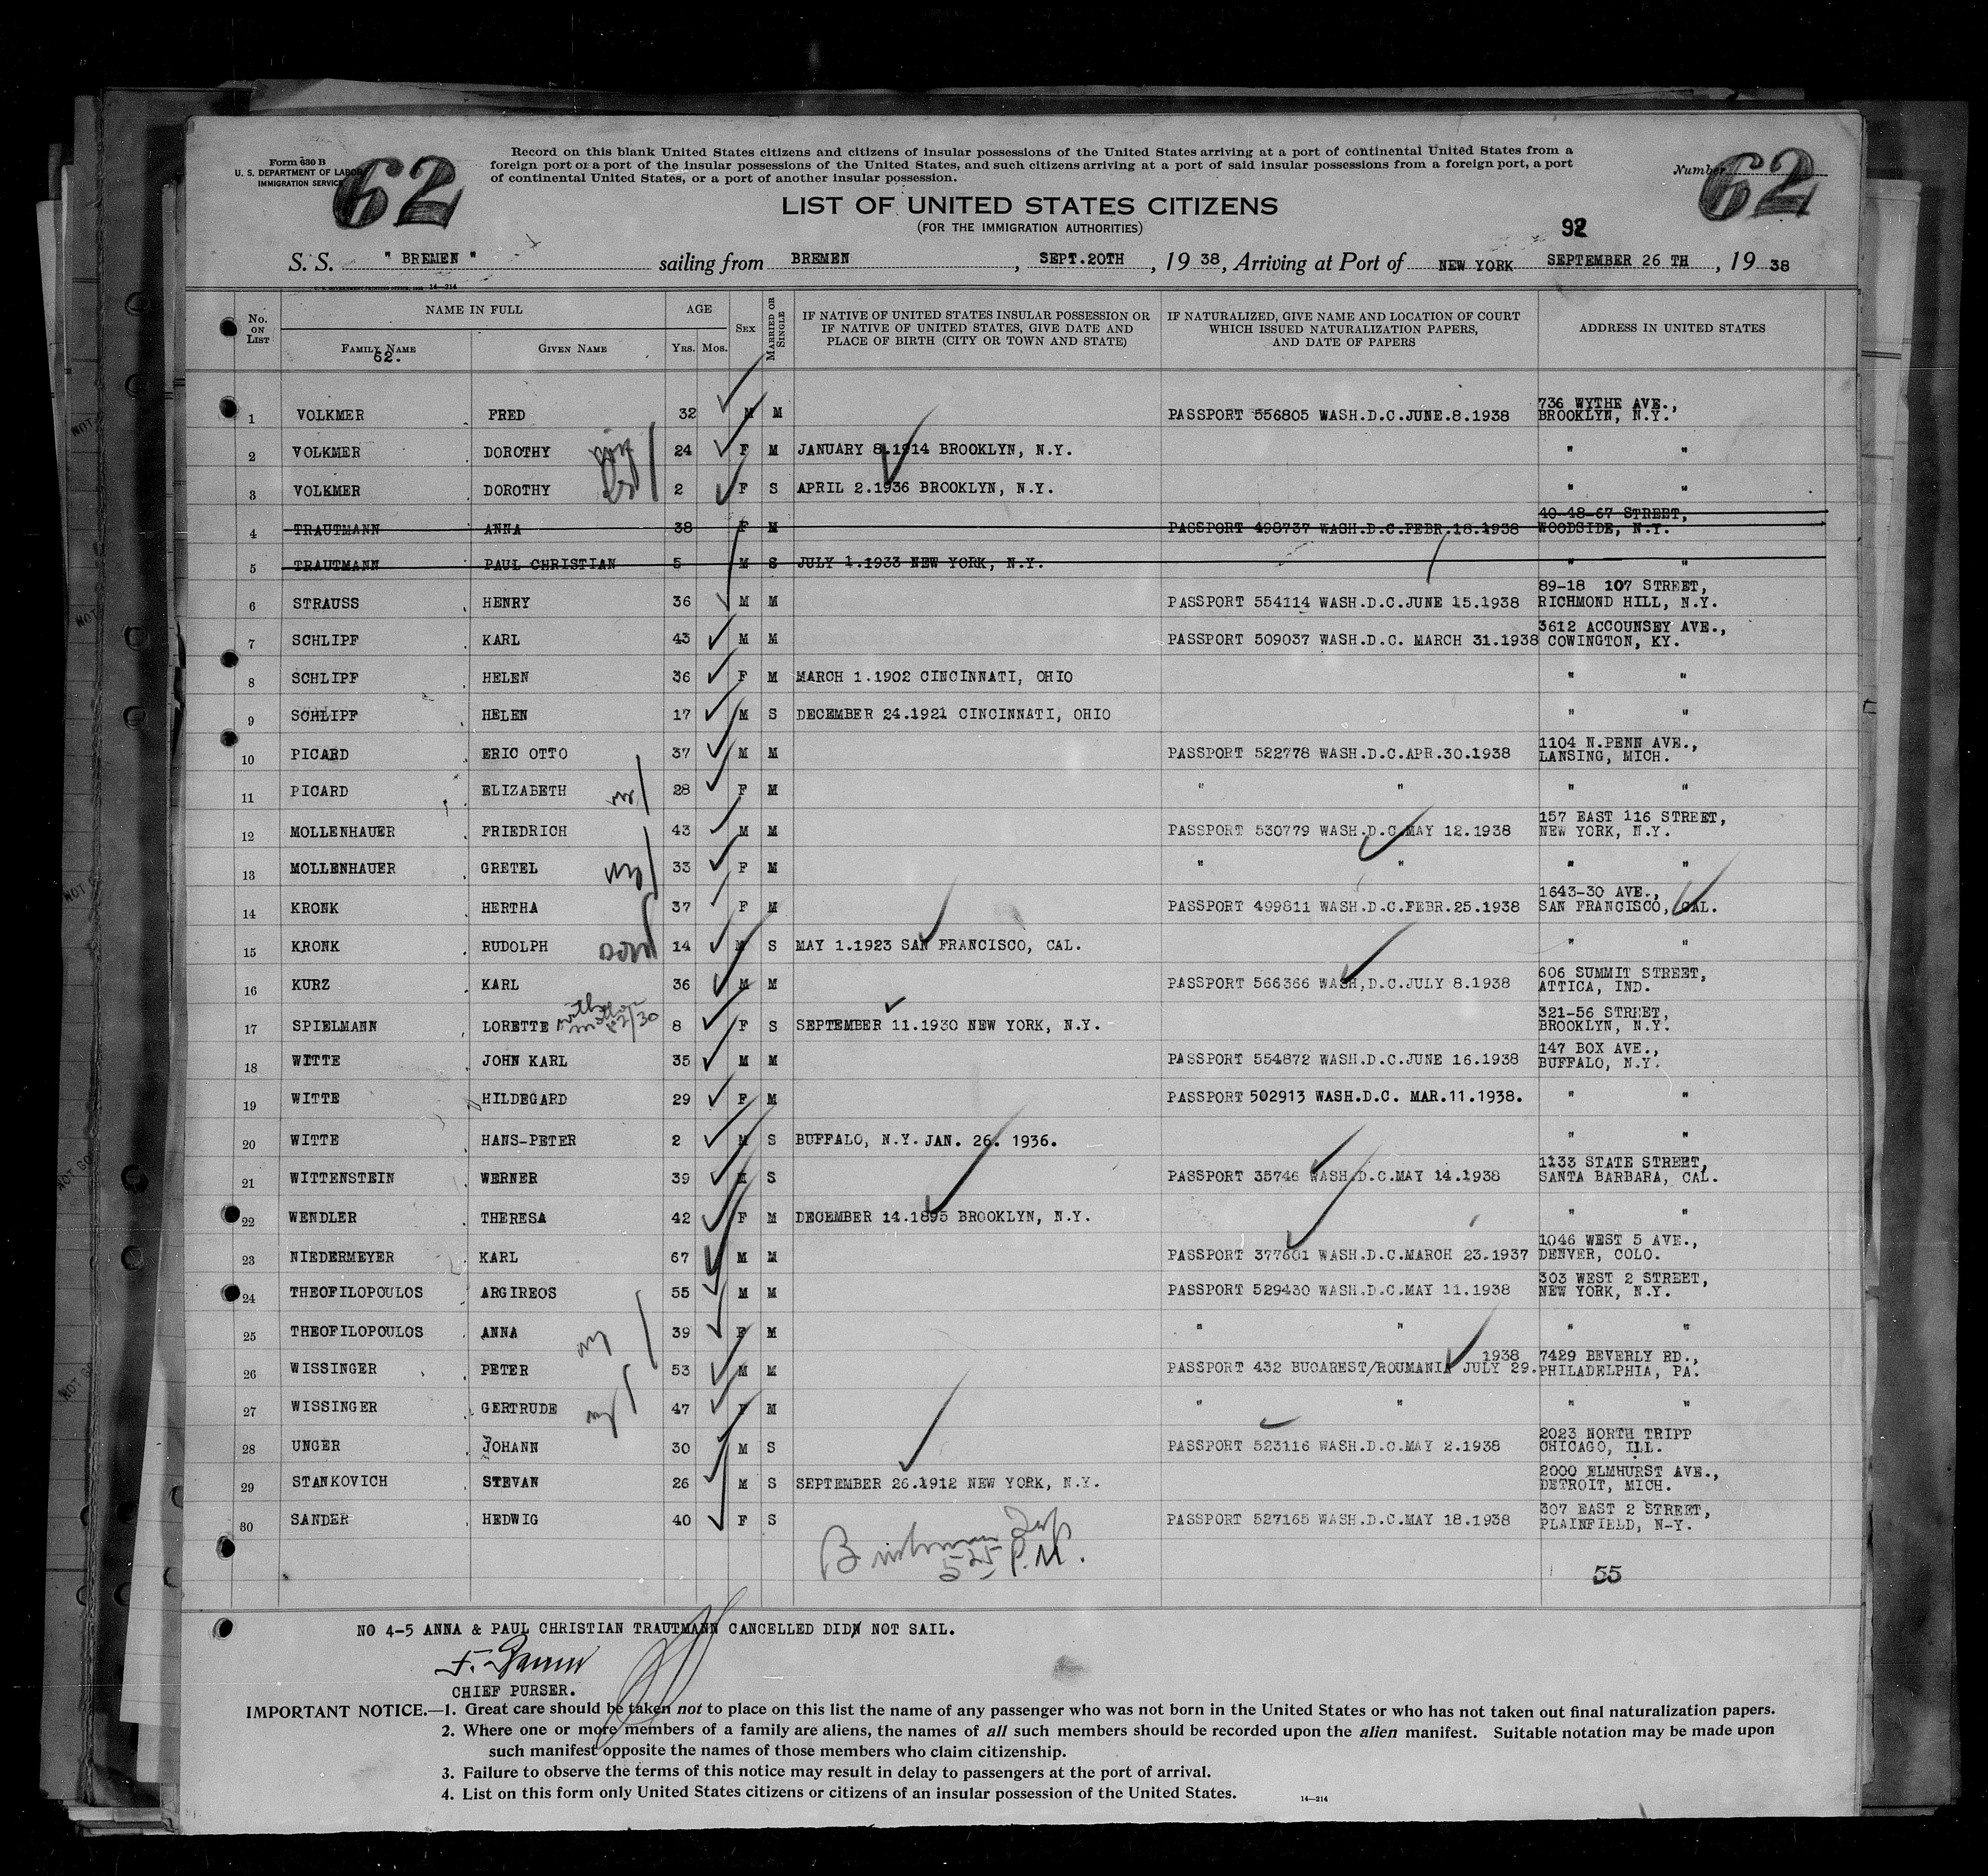 Form 630 B
U. S. DEPARTMENT OF LABOR
IMMIGRATION SERVICE
62
Record on this blank United States citizens and citizens of insular possessions of the United States arriving at a port of continental United States from a
foreign port or a port of the insular possessions of the United States, and such citizens arriving at a port of said insular possessions from a foreign port, a port
of continental United States, or a port of another insular possession.
Number
62
LIST OF UNITED STATES CITIZENS
(FOR THE IMMIGRATION AUTHORITIES)
92
S. S. " BREMEN " sailing from BREMEN, SEPT.20TH, 1938, Arriving at Port of NEW YORK SEPTEMBER 26 TH, 1938
14—214
No. ON LIST
NAME IN FULL
FAMILY NAME
62.
GIVEN NAME
AGE
YRS. MOS.
SEX
MARRIED OR SINGLE
IF NATIVE OF UNITED STATES INSULAR POSSESSION OR
IF NATIVE OF UNITED STATES, GIVE DATE AND
PLACE OF BIRTH (CITY OR TOWN AND STATE)
IF NATURALIZED, GIVE NAME AND LOCATION OF COURT
WHICH ISSUED NATURALIZATION PAPERS,
AND DATE OF PAPERS
ADDRESS IN UNITED STATES
1 VOLKMER FRED 32 M M PASSPORT 556805 WASH.D.C.JUNE.8.1938 736 WYTHE AVE., BROOKLYN, N.Y.
2 VOLKMER DOROTHY 24 F M JANUARY 8.1914 BROOKLYN, N.Y. " "
3 VOLKMER DOROTHY 2 F S APRIL 2.1936 BROOKLYN, N.Y. " "
4 TRAUTMANN ANNA 38 F M PASSPORT 498737 WASH.D.C.FEBR.18.1938 40-48-67 STREET, WOODSIDE, N.Y.
5 TRAUTMANN PAUL CHRISTIAN 5 M S JULY 1.1933 NEW YORK, N.Y. " "
6 STRAUSS HENRY 36 M M PASSPORT 554114 WASH.D.C.JUNE 15.1938 89-18 107 STREET, RICHMOND HILL, N.Y.
7 SCHLIPF KARL 43 M M PASSPORT 509037 WASH.D.C. MARCH 31.1938 3612 ACCOUNSEY AVE., COWINGTON, KY.
8 SCHLIPF HELEN 36 F M MARCH 1.1902 CINCINNATI, OHIO " "
9 SCHLIPF HELEN 17 M S DECEMBER 24.1921 CINCINNATI, OHIO " "
10 PICARD ERIC OTTO 37 M M PASSPORT 522778 WASH.D.C.APR.30.1938 1104 N.PENN AVE., LANSING, MICH.
11 PICARD ELIZABETH 28 F M " " " "
12 MOLLENHAUER FRIEDRICH 43 M M PASSPORT 530779 WASH.D.C.MAY 12.1938 157 EAST 116 STREET, NEW YORK, N.Y.
13 MOLLENHAUER GRETEL 33 F M " " " "
14 KRONK HERTHA 37 F M PASSPORT 499811 WASH.D.C.FEBR.25.1938 1643-30 AVE., SAN FRANCISCO, CAL.
15 KRONK RUDOLPH son 14 M S MAY 1.1923 SAN FRANCISCO, CAL. " "
16 KURZ KARL 36 M M PASSPORT 566366 WASH,D.C.JULY 8.1938 606 SUMMIT STREET, ATTICA, IND.
17 SPIELMANN LORETTE with mother 8 F S SEPTEMBER 11.1930 NEW YORK, N.Y. 321-56 STREET, BROOKLYN, N.Y.
18 WITTE JOHN KARL 35 M M PASSPORT 554872 WASH.D.C.JUNE 16.1938 147 BOX AVE., BUFFALO, N.Y.
19 WITTE HILDEGARD 29 F M PASSPORT 502913 WASH.D.C. MAR.11.1938. " "
20 WITTE HANS-PETER 2 M S BUFFALO, N.Y. JAN. 26. 1936. " "
21 WITTENSTEIN WERNER 39 M S PASSPORT 35746 WASH.D.C.MAY 14.1938 1133 STATE STREET, SANTA BARBARA, CAL.
22 WENDLER THERESA 42 F M DECEMBER 14.1895 BROOKLYN, N.Y. " "
23 NIEDERMEYER KARL 67 M M PASSPORT 377601 WASH.D.C.MARCH 23.1937 1046 WEST 5 AVE., DENVER, COLO.
24 THEOFILOPOULOS ARGIREOS 55 M M PASSPORT 529430 WASH.D.C.MAY 11.1938 303 WEST 2 STREET, NEW YORK, N.Y.
25 THEOFILOPOULOS ANNA 39 F M " " " "
26 WISSINGER PETER 53 M M PASSPORT 432 BUCAREST/ROUMANIA JULY 29. 1938 7429 BEVERLY RD., PHILADELPHIA, PA.
27 WISSINGER GERTRUDE 47 F M " " " "
28 UNGER JOHANN 30 M S PASSPORT 523116 WASH.D.C.MAY 2.1938 2023 NORTH TRIPP CHICAGO, ILL.
29 STANKOVICH STEVAN 26 M S SEPTEMBER 26.1912 NEW YORK, N.Y. 2000 ELMHURST AVE., DETROIT, MICH.
30 SANDER HEDWIG 40 F S PASSPORT 527165 WASH.D.C.MAY 18.1938 307 EAST 2 STREET, PLAINFIELD, N-Y.
525 P.M.
55
NO 4-5 ANNA & PAUL CHRISTIAN TRAUTMANN CANCELLED DID NOT SAIL.
CHIEF PURSER.
IMPORTANT NOTICE.—1. Great care should be taken not to place on this list the name of any passenger who was not born in the United States or who has not taken out final naturalization papers.
2. Where one or more members of a family are aliens, the names of all such members should be recorded upon the alien manifest. Suitable notation may be made upon
such manifest opposite the names of those members who claim citizenship.
3. Failure to observe the terms of this notice may result in delay to passengers at the port of arrival.
4. List on this form only United States citizens or citizens of an insular possession of the United States.
14—214